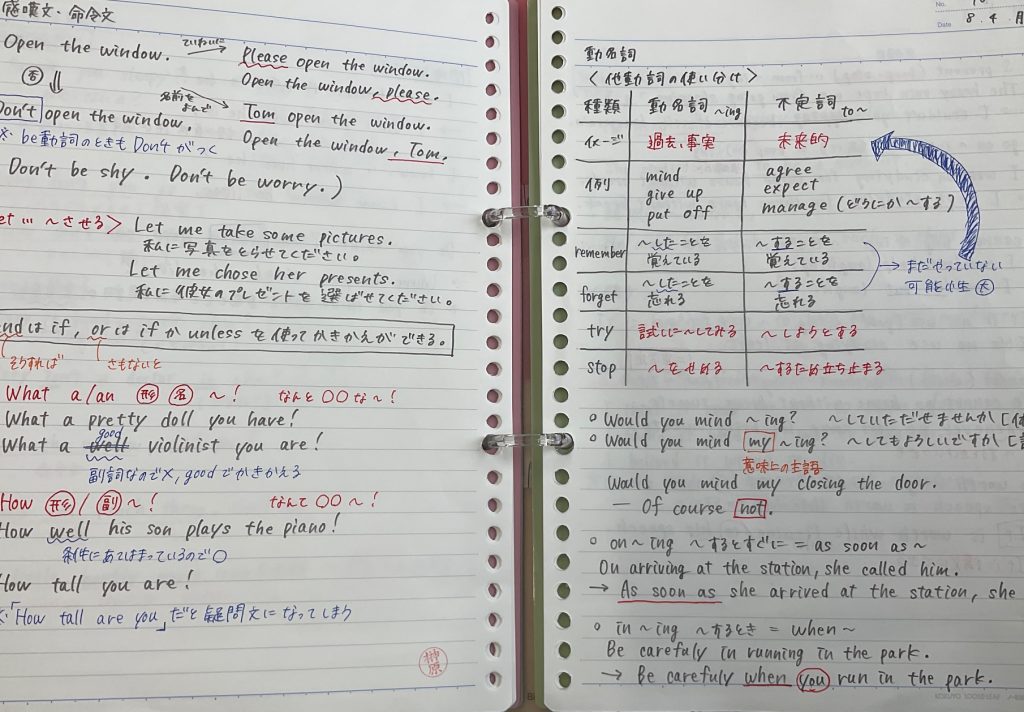 感嘆文・命令文
Open the window.
ていねいに
Please open the window.
Open the window, please.
否
名前をよんで
Don't open the window.
Tom open the window.
Open the window, Tom.
※be動詞のときも Don't がつく
Don't be shy. Don't be worry.)
et … ～させる>
Let me take some pictures.
私に写真をとらせてください。
Let me chose her presents.
私に彼女のプレゼントを選ばせてください。
andは if, orは if か unless を使ってかきかえができる。
そうすれば さもないと
What a/an 形 名 ～! なんと〇〇な～!
What a pretty doll you have!
good
What a well violinist you are!
副詞なので×, good でかきかえる
How 形/副～! なんて〇〇～!
How well his son plays the piano!
条件にあてはまっているので〇
How tall you are!
※「How tall are you」だと疑問文になってしまう
榊原
No.
Date 8.4.月
動名詞
<他動詞の使い分け>
種類 動名詞 ～ing 不定詞 to～
イメージ 過去、事実 未来的
例 mind give up put off agree expect manage (どうにか～する)
remember ～したことを覚えている ～することを覚えている
forget ～したことを忘れる ～することを忘れる
→ まだやっていない可能性大
try 試しに～してみる ～しようとする
stop ～をやめる ～するため立ち止まる
○ Would you mind ～ing? ～していただけませんか
○ Would you mind my ～ing? ～してもよろしいですか
意味上の主語
Would you mind my closing the door.
— Of course not.
○ on～ing ～するとすぐに = as soon as～
On arriving at the station, she called him.
→ As soon as she arrived at the station, she
○ in～ing ～するとき = when～
Be carefuly in running in the park.
→ Be carefuly when you run in the park.